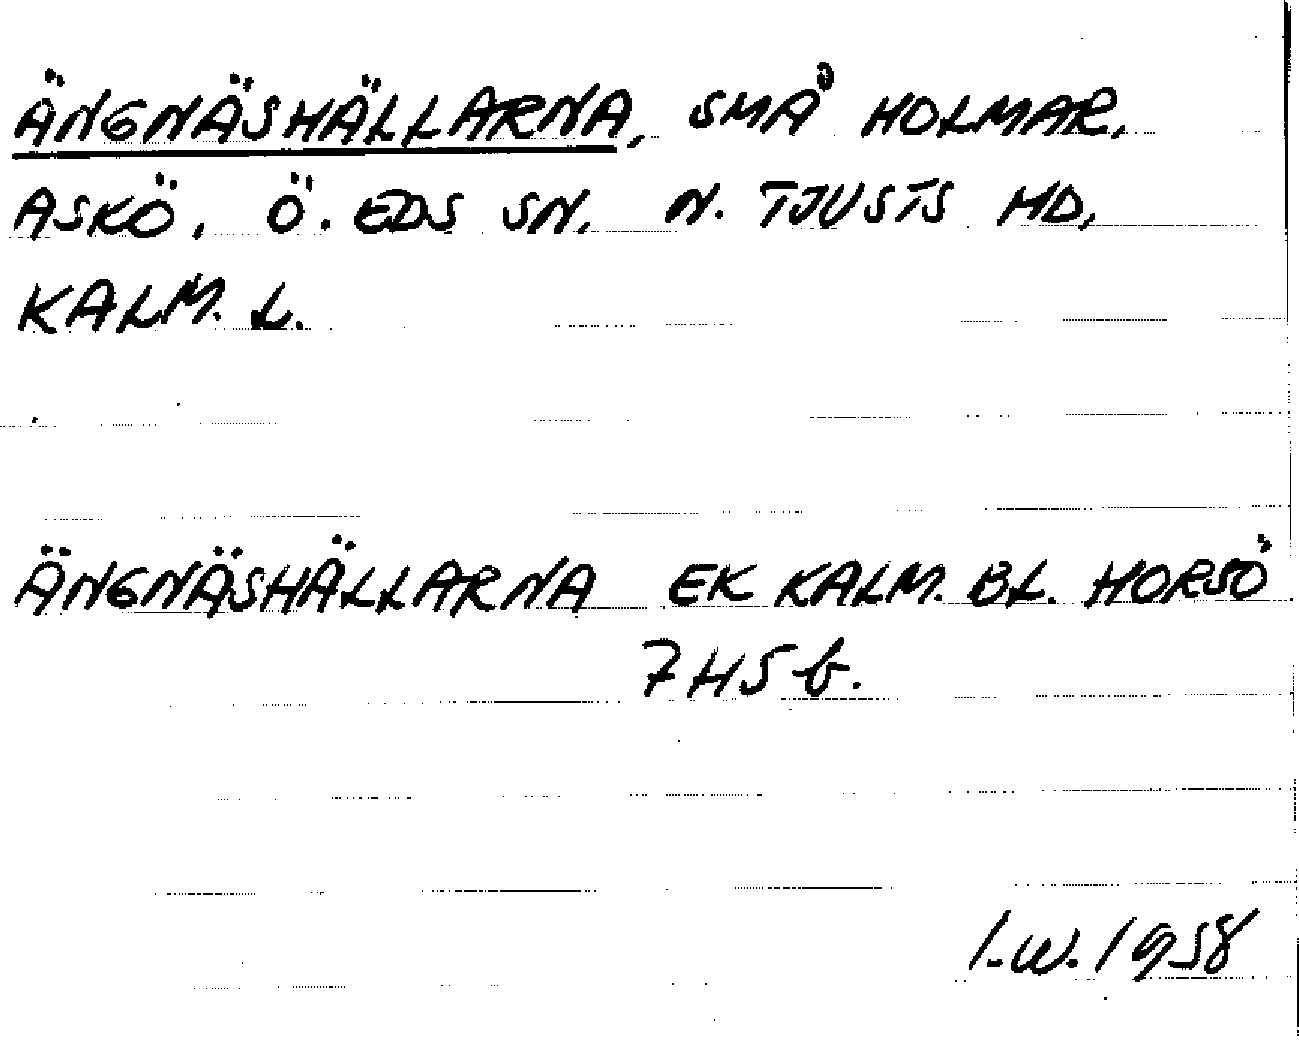 ÄNGNÄSHÄLLARNA, SMÅ HOLMAR,
ASKÖ, Ö. EDS SN. N. TJUSTS HD,
KALM. L.
ÄNGNÄSHÄLLARNA EK KALM. BL. HORSÖ
7H5b.
I.W. 1958